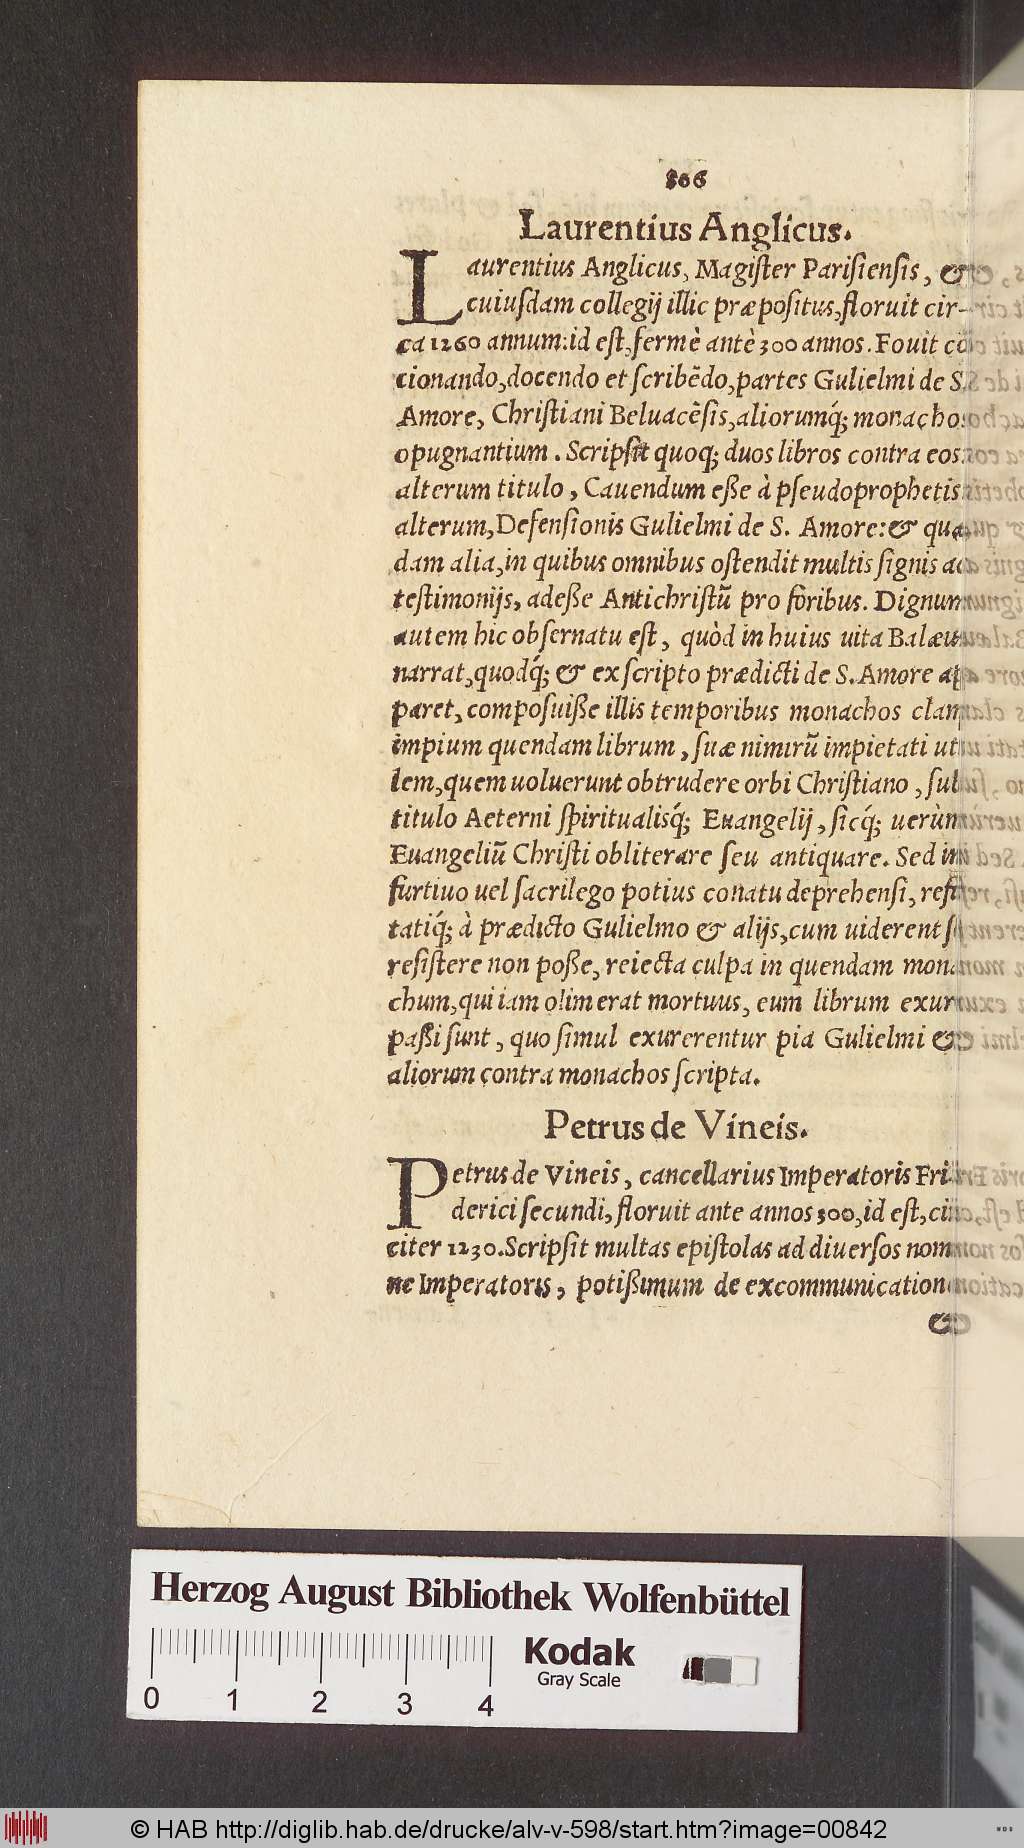 806
Laurentius Anglicus.
Laurentius Anglicus, Magister Parisiensis, &
cuiusdam collegij illic præpositus, floruit cir-
ca 1260 annum: id est, fermè antè 300 annos. Fouit cō
cionando, docendo et scribēdo, partes Gulielmi de S.
Amore, Christiani Beluacēsis, aliorumq́; monachos
opugnantium. Scripsit quoq; duos libros contra eos:
alterum titulo, Cauendum esse à pseudoprophetis:
alterum, Defensionis Gulielmi de S. Amore: & quæ
dam alia, in quibus omnibus ostendit multis signis ac
testimonijs, adesse Antichristū pro foribus. Dignum
autem hic obsernatu est, quòd in huius uita Balæus
narrat, quodq́; & ex scripto prædicti de S. Amore ap
paret, composuisse illis temporibus monachos clam
impium quendam librum, suæ nimirū impietati uti
lem, quem uoluerunt obtrudere orbi Christiano, sub
titulo Aeterni spiritualisq́; Euangelij, sicq́; uerùm
Euangeliū Christi obliterare seu antiquare. Sed in
furtiuo uel sacrilego potius conatu deprehensi, refu
tatiq́; à prædicto Gulielmo & alijs, cum uiderent se
resistere non posse, reiecta culpa in quendam mona
chum, qui iam olim erat mortuus, eum librum exuri
passi sunt, quo simul exurerentur pia Gulielmi &
aliorum contra monachos scripta.
Petrus de Vineis.
Petrus de Vineis, cancellarius Imperatoris Fri
derici secundi, floruit ante annos 300, id est, cir
citer 1230. Scripsit multas epistolas ad diuersos nomi
ne Imperatoris, potissimum de excommunicatione
&
Herzog August Bibliothek Wolfenbüttel
Kodak
Gray Scale
0 1 2 3 4
© HAB http://diglib.hab.de/drucke/alv-v-598/start.htm?image=00842